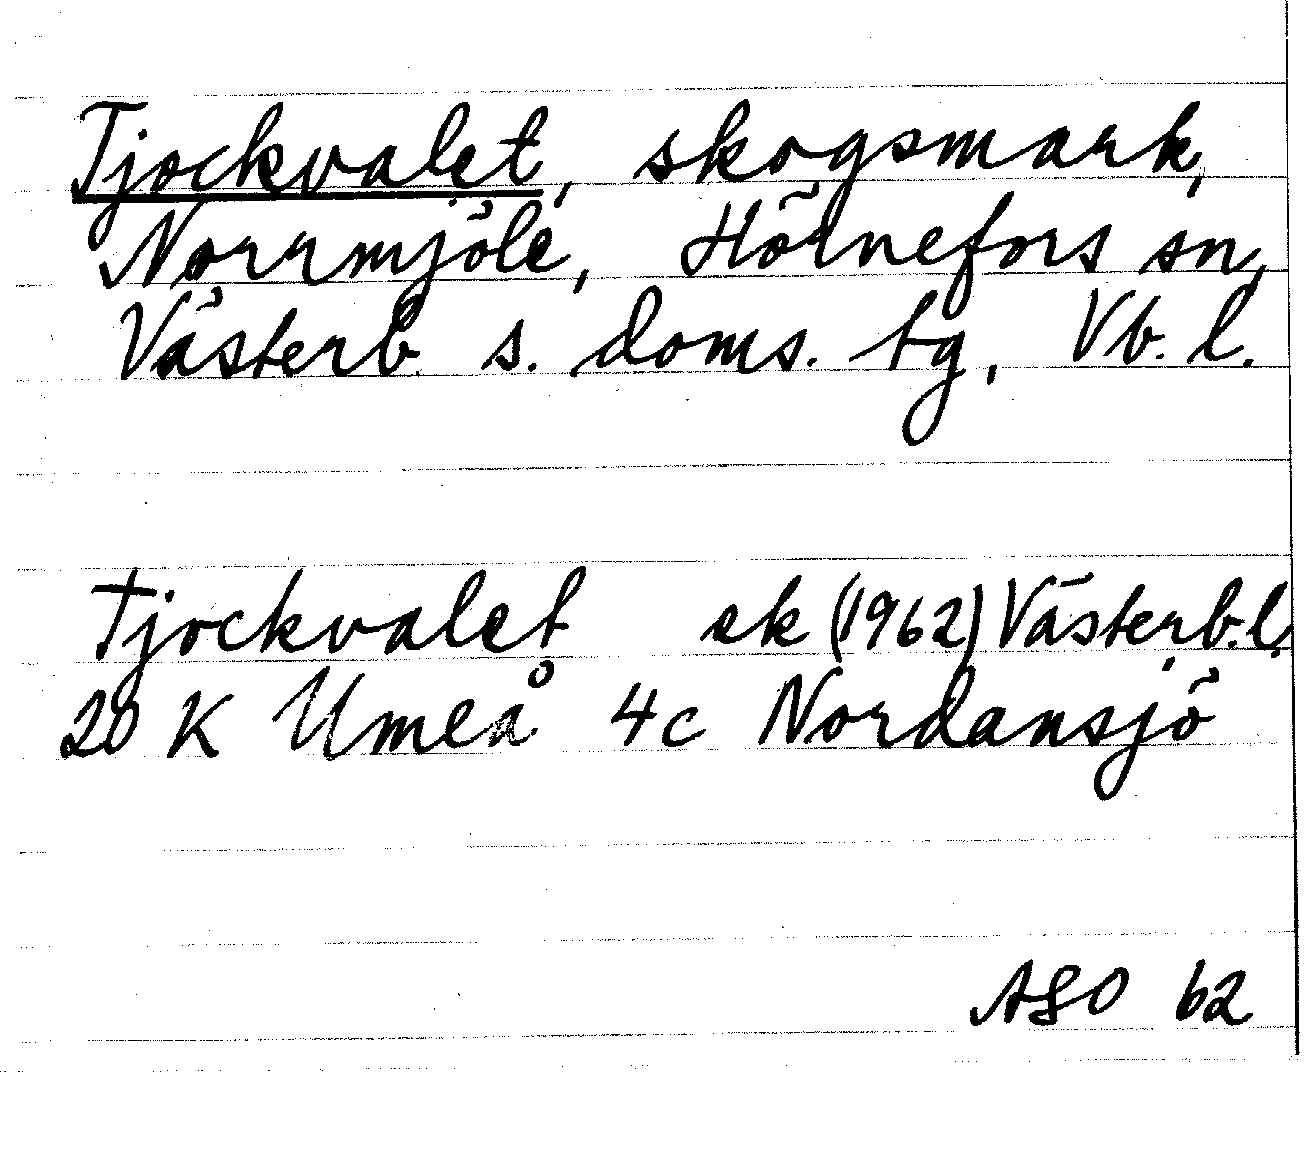 Tjockvalet, skogsmark,
Norrmjöle, Hörnefors sn,
Västerb. s. doms. tg, Vb. l.
Tjockvalet ek (1962) Västerb. l.
20 K Umeå 4c Nordansjö
ASO 62